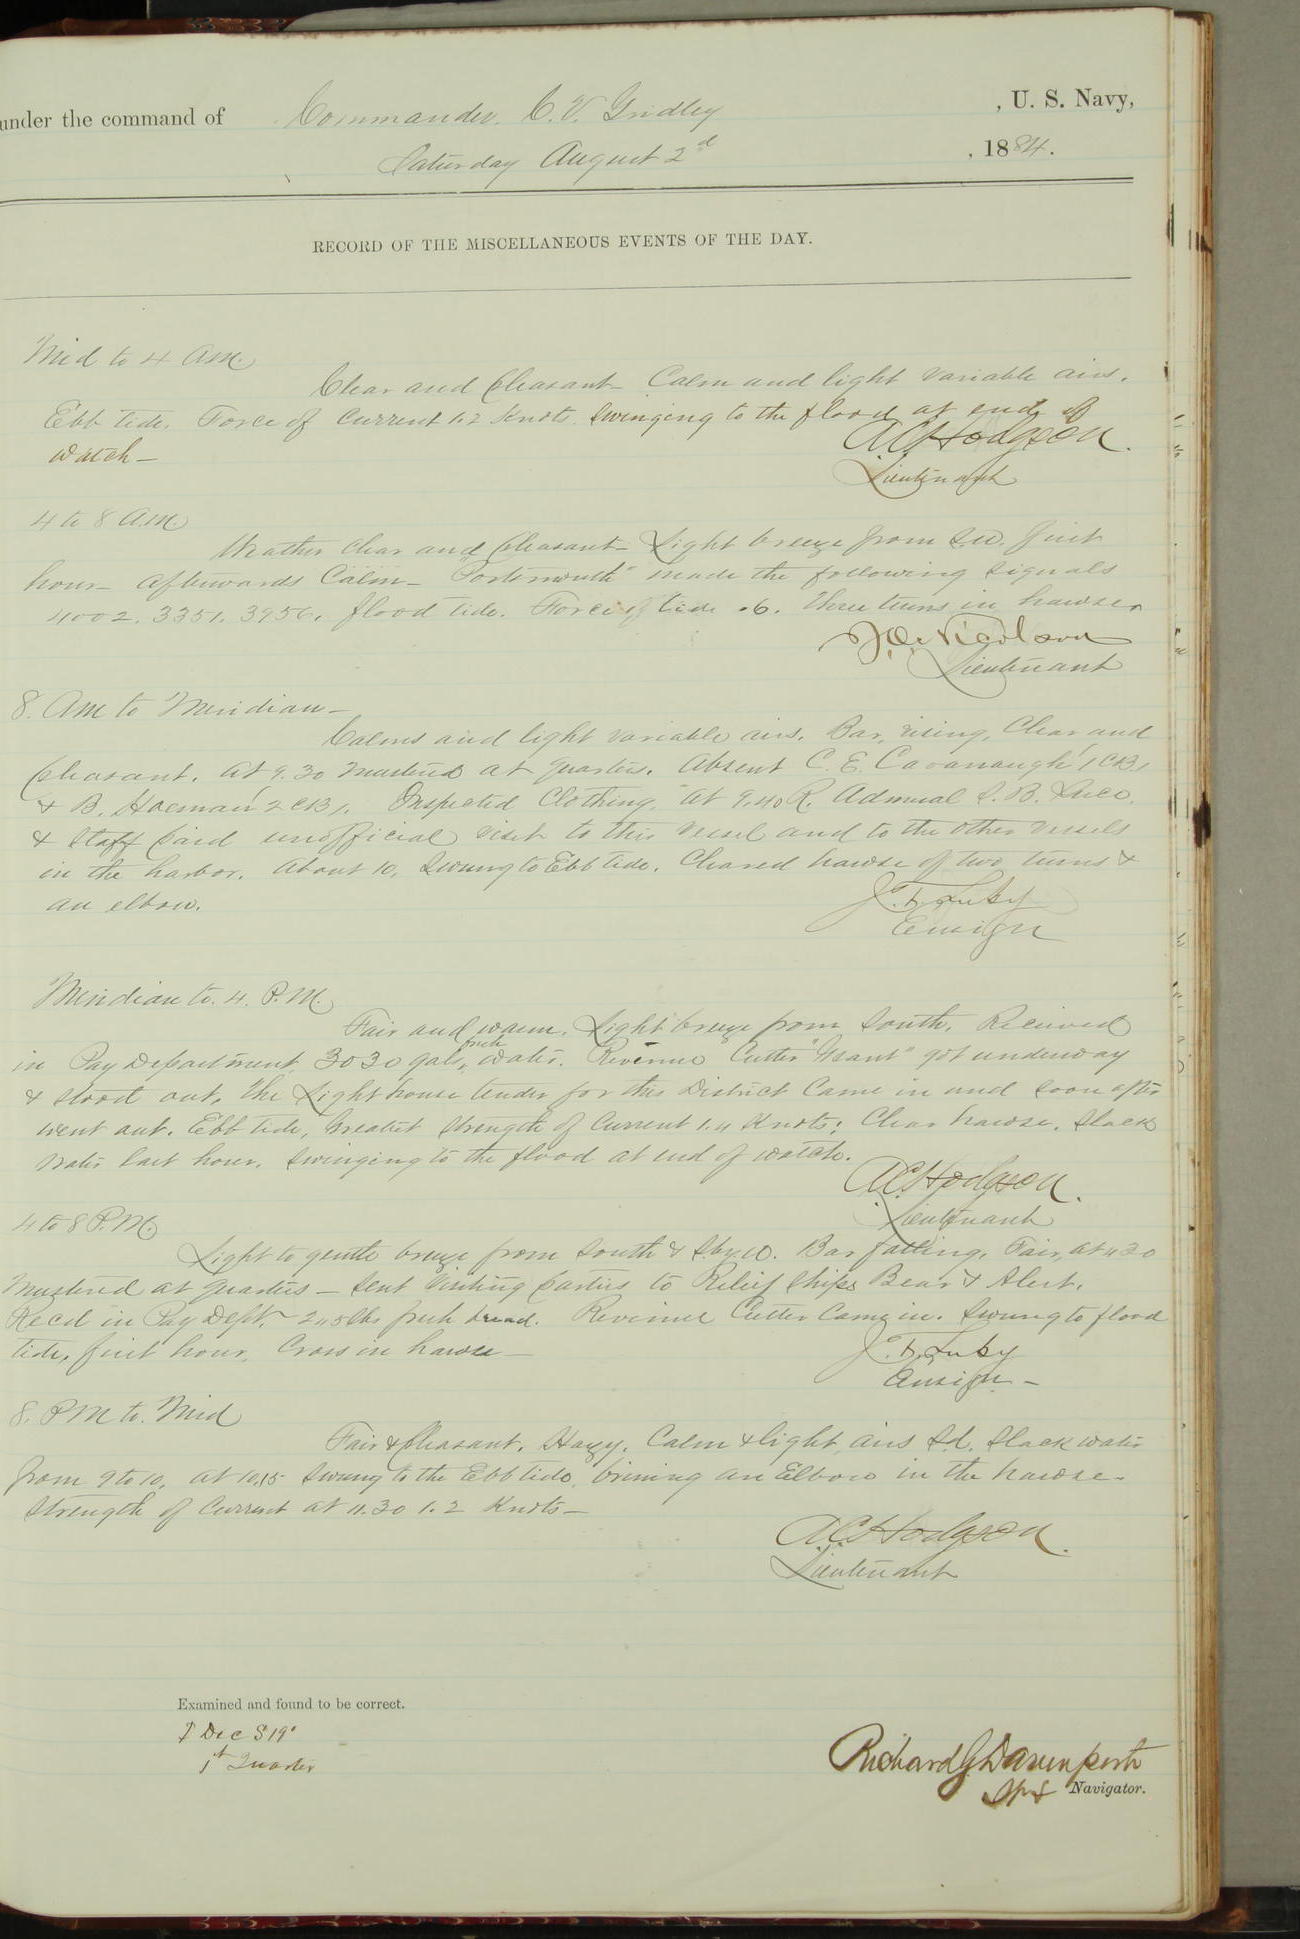 under the command of Commander. C. V. Gridley , U. S. Navy,
Saturday August 2d , 1884.
RECORD OF THE MISCELLANEOUS EVENTS OF THE DAY.
Mid to 4 A.M.
Clear and pleasant - Calm and light variable airs.
Ebb tide. Force of current 1.2 Knots. Swinging to the flood at end of
watch -
A C Hodgson.
Lieutenant
4 to 8 A.M.
Weather clear and pleasant - Light breeze from S.W. first
hour - afterwards Calm - "Portsmouth" made the following signals
4002. 3351. 3956. flood tide. Force of tide .6. Three turns in hawse.
Nicolson
Lieutenant
8. AM to Meridian -
Calms and light variable airs. Bar, rising, Clear and
pleasant. At 9.30 mustered at quarters. Absent C. E. Cavanaugh 1 CB,
& B. 2 CB,. Inspected Clothing. At 9.40 R. Admiral S. B. Luce.
& Staff paid unofficial visit to this vessel and to the other vessels
in the harbor. About 10, Swung to Ebb tide. Cleared hawse of two turns &
an elbow.
J. F. Luby
Ensign
Meridian to. 4. P.M.
Fair and warm. Light breeze from South. Received
in Pay Department 3030 gals, fresh water. Revenue Cutter "Grant" got underway
& stood out. The Light house tender for this District came in and soon after
went out. Ebb tide, Greatest Strength of Current 1.4 Knots; Clear hawse. Slack
water last hour. Swinging to the flood at end of watch.
A C Hodgson.
Lieutenant
4 to 8 P.M.
Light to gentle breeze from South & S. by W. Bar falling. Fair, at 4 30
mustered at quarters - Sent visiting parties to Relief Ships Bear & Alert.
Rec'd in Pay Dept. 245 lbs fresh bread. Revenue Cutter Came in. Swung to flood
tide, first hour, Cross in hawse -
J. F. Luby
Ensign -
8. P M to. Mid
Fair & pleasant. Hazy. Calm & light airs Sd. Slack water
from 9 to 10. at 10.15 Swung to the Ebb tide, bringing an Elbow in the hawse -
Strength of Current at 11.30 1.2 Knots -
A C Hodgson.
Lieutenant
Examined and found to be correct.
Dec S 19°
1st Quarter
Richard G Davenport
Navigator.